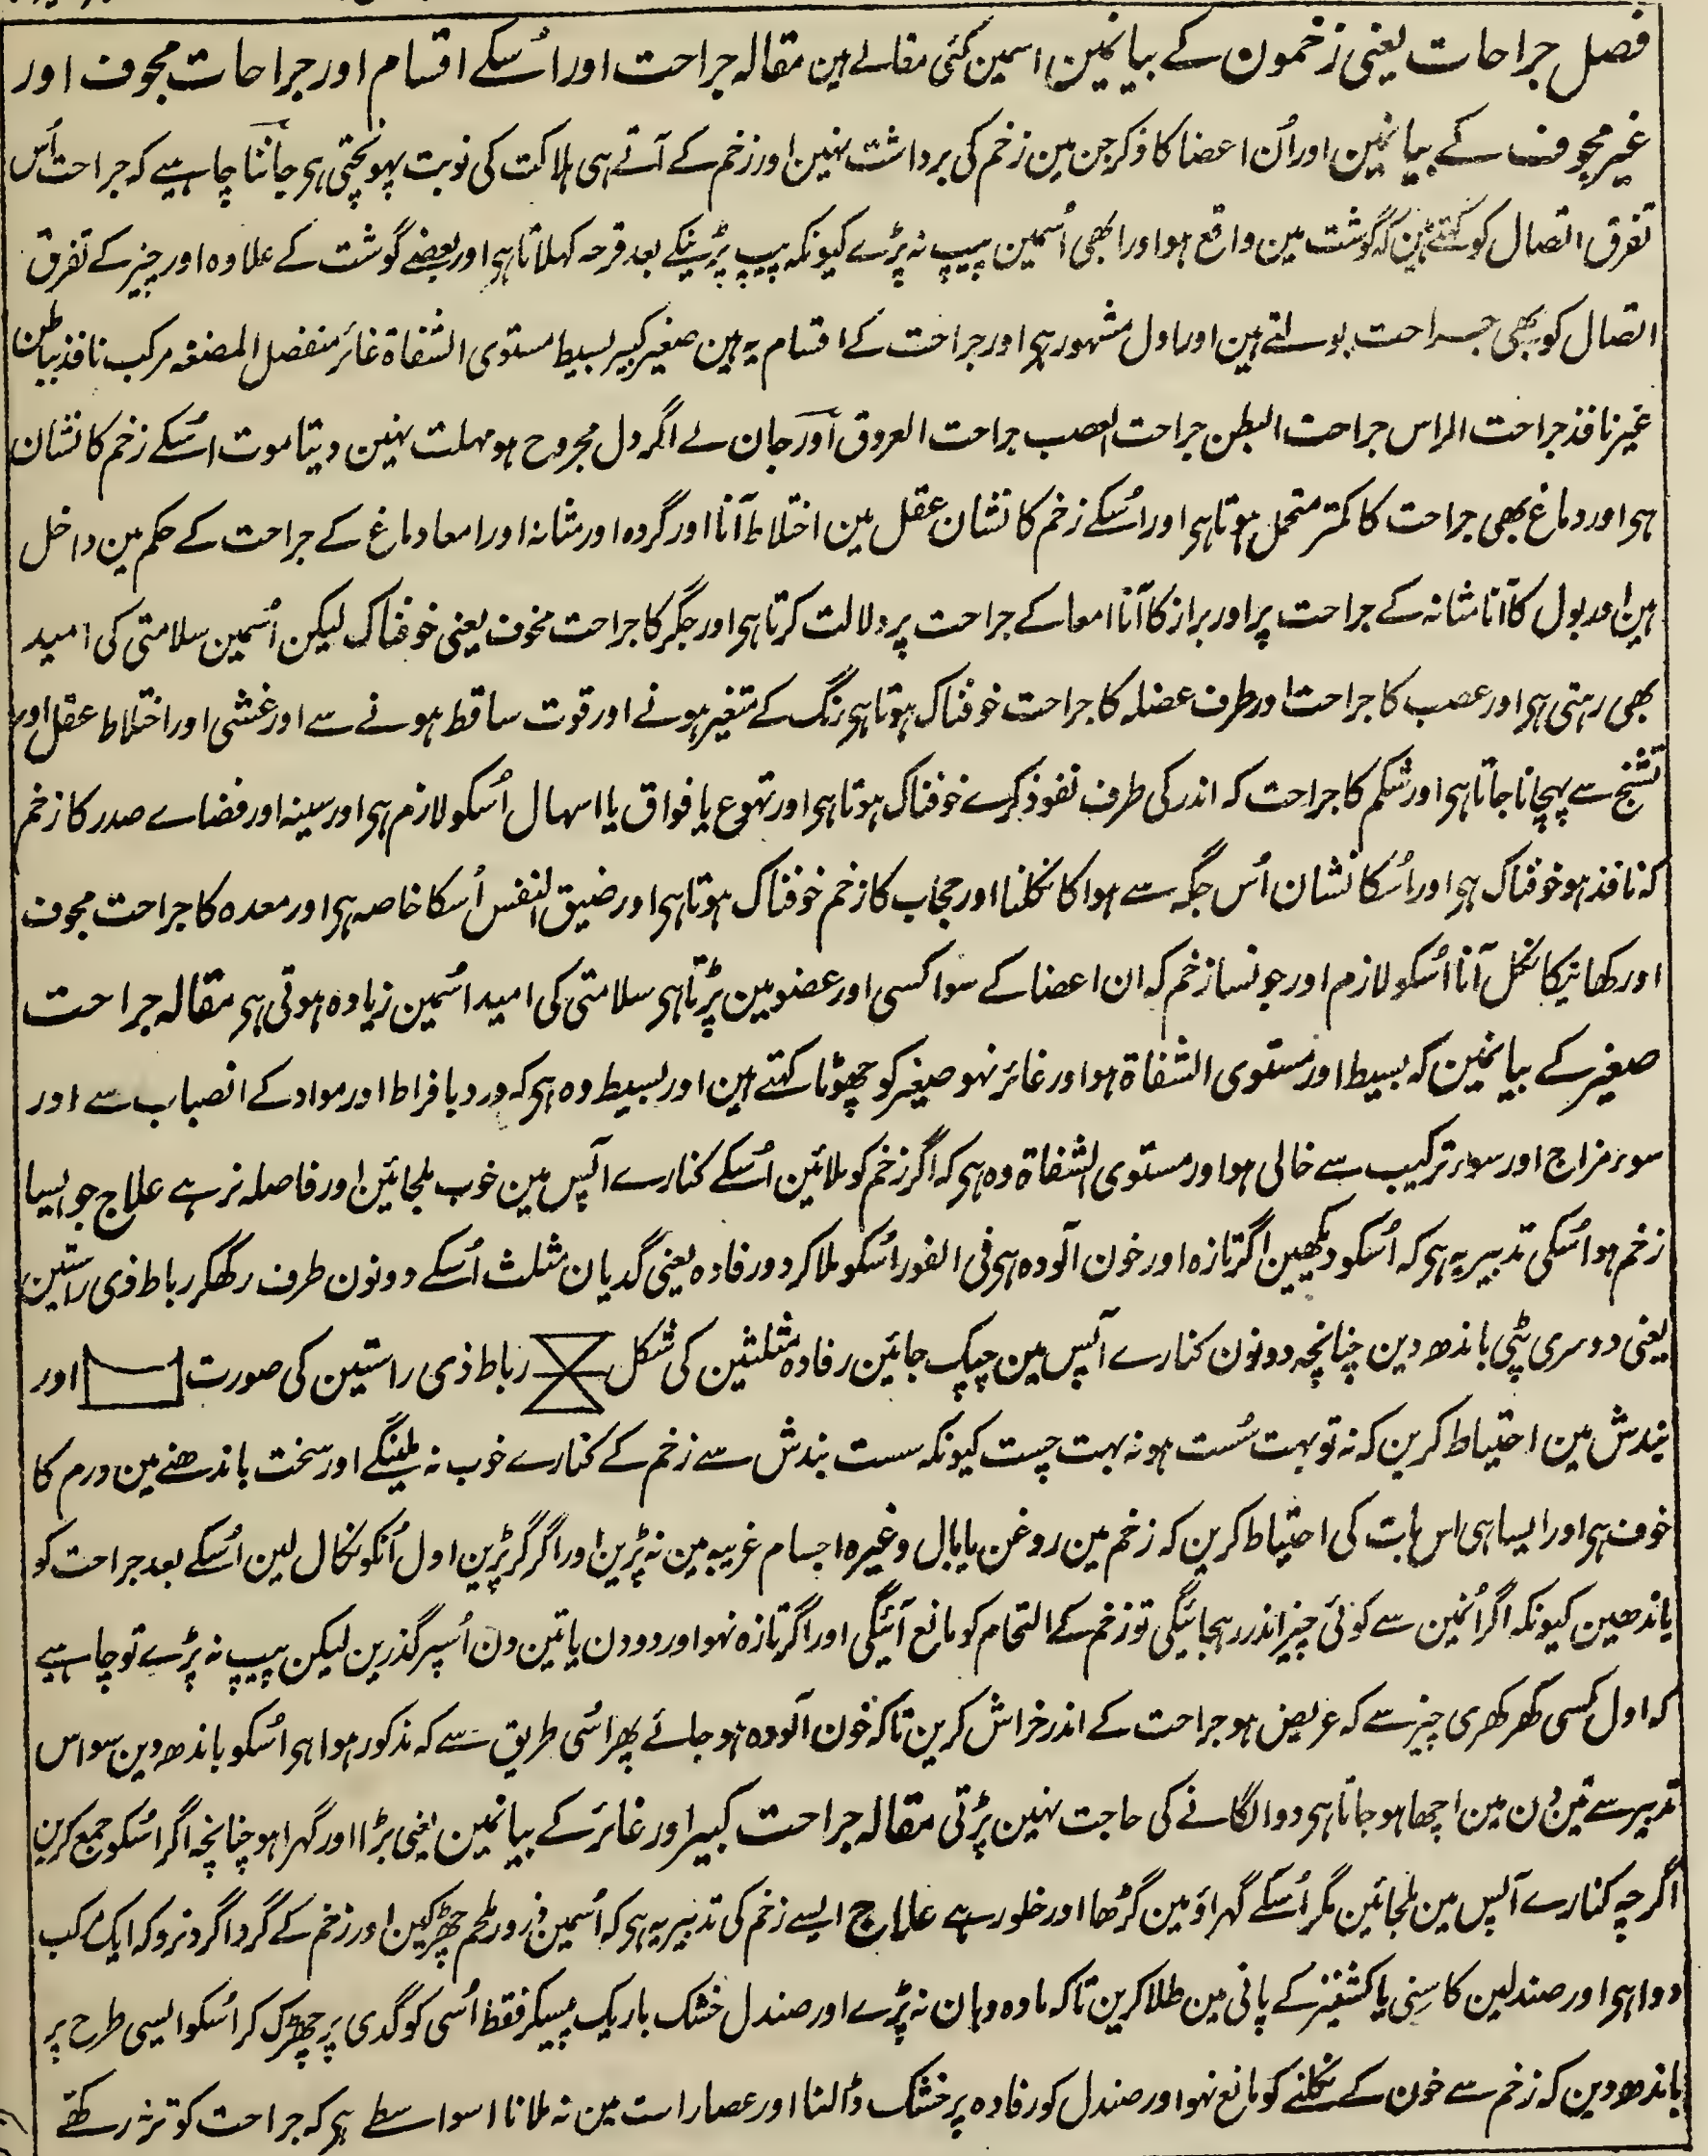 فصل جراحات یعنی زخمون کے بیانمین اسمین کئی مقالے ہین مقالہ جراحت اور اُسکے اقسام اور جراحات مجوف اور
غیر مجوف کے بیانمین اور اُن اعضا کا ذکر جن مین زخم کی برداشت نہین اور زخم کے آتے ہی ہلاکت کی نوبت پہونچتی ہی جاننا چاہیے کہ جراحت اُس
تفرق اتصال کو کہتے ہین کہ گوشت مین واقع ہو اور ابھی اُسمین پیپ نہ پڑے کیونکہ پیپ پڑنیکے بعد قرحہ کہلاتا ہی اور بعضے گوشت کے علاوہ اور چیز کے تفرق
اتصال کو بھی جراحت بولتے ہین اور اول مشہور ہی اور جراحت کے اقسام یہ ہین صغیر کبیر بسیط مستوی الشفاة غائر منفصل المضغہ مرکب نافذ بباطن
غیر نافذ جراحت الراس جراحت البطن جراحت العصب جراحت العروق اور جان لے اگر دل مجروح ہو مہلت نہین دیتا موت اسکے زخم کا نشان
ہی اور دماغ بھی جراحت کا کمتر متحمل ہوتا ہی اور اُسکے زخم کا نشان عقل مین اختلاط آنا اور گردہ اور مثانہ اور امعا دماغ کے جراحت کے حکم مین داخل
ہین اور بول کا آنا مثانہ کے جراحت پر اور براز کا آنا امعا کے جراحت پر دلالت کرتا ہی اور جگر کا جراحت مخوف یعنی خوفناک لیکن اُسمین سلامتی کی امید
بھی رہتی ہی اور عصب کا جراحت اور طرف عضلہ کا جراحت خوفناک ہوتا ہی رنگ کے متغیر ہونے اور قوت ساقط ہونے سے اور غشی اور اختلاط عقل اور
تشنج سے پہچانا جاتا ہی اور شکم کا جراحت کہ اندر کی طرف نفوذ کرے خوفناک ہوتا ہی اور تہوع یا فواق یا اسہال اُسکو لازم ہی اور سینہ اور فضاے صدر کا زخم
کہ نافذ ہو خوفناک ہو اور اُسکا نشان اُس جگہ سے ہوا کا نکلنا اور حجاب کا زخم خوفناک ہوتا ہی اور ضیق النفس اُسکا خاصہ ہی اور معدہ کا جراحت مجوف
اور کھانیکا نکل آنا اُسکو لازم اور جونسا زخم کہ ان اعضا کے سوا کسی اور عضو مین پڑتا ہی سلامتی کی امید اُسمین زیادہ ہوتی ہی مقالہ جراحت
صغیر کے بیانمین کہ بسیط اور مستوی الشفاة ہو اور غائر نہو صغیر کو چھوٹا کہتے ہین اور بسیط وہ ہی کہ درد بافراط اور مواد کے انصباب سے اور
سوء مزاج اور سوء ترکیب سے خالی ہو اور مستوی الشفاة وہ ہی کہ اگر زخم کو ملائین اُسکے کنارے آپس مین خوب ملجائین اور فاصلہ نرہے علاج جو ایسا
زخم ہو اُسکی تدبیر یہ ہی کہ اُسکو دیکھین اگر تازہ اور خون آلودہ ہی فی الفور اُسکو ملا کر دو رفادہ یعنی گدیان مثلث اُسکے دونون طرف رکھکر رباط ذی راستین
یعنی دوسری پٹی باندھ دین چنانچہ دونون کنارے آپس مین چپک جائین رفادہ مثلثین کی شکل رباط ذی راستین کی صورت اور
بندش مین احتیاط کرین کہ نہ تو بہت سُست ہو نہ بہت چست کیونکہ سست بندش سے زخم کے کنارے خوب نہ ملینگے اور سخت باندھنے مین ورم کا
خوف ہی اور ایسا ہی اس بات کی احتیاط کرین کہ زخم مین روغن یا بال وغیرہ اجسام غریبہ مین نہ پڑین اور اگر گر پڑین اول اُنکو نکال لین اُسکے بعد جراحت کو
باندھین کیونکہ اگر اُنمین سے کوئی چیز اندر رہجائیگی تو زخم کے التحام کو مانع آئیگی اور اگر تازہ نہو اور دو دن یا تین دن اُسپر گذرین لیکن پیپ نہ پڑے تو چاہیے
کہ اول کسی کھرکھری چیز سے کہ عریض ہو جراحت کے اندر خراش کرین تاکہ خون آلودہ ہو جائے پھر اُسی طریق سے کہ مذکور ہوا ہی اُسکو باندھ دین سو اس
تدبیر سے تین دن مین اچھا ہو جاتا ہی دوا لگانے کی حاجت نہین پڑتی مقالہ جراحت کبیر اور غائر کے بیانمین یعنی بڑا اور گہرا ہو چنانچہ اگر اُسکو جمع کرین
اگرچہ کنارے آپس مین ملجائین مگر اُسکے گہراؤ مین گڑھا اور خلو رہے علاج ایسے زخم کی تدبیر یہ ہی کہ اُسمین ذرور ملحم چھڑکین اور زخم کے گرداگرد نرو کہ ایک مرکب
دوا ہی اور صندلین کاسنی یا کشنیز کے پانی مین طلا کرین تاکہ مادہ وہان نہ پڑے اور صندل خشک باریک پیسکر فقط اُسی کو گدی پر چھڑک کر اُسکو ایسی طرح پر
باندھ دین کہ زخم سے خون کے نکلنے کو مانع نہو اور صندل کو رفادہ پر خشک ڈالنا اور عصارات مین نہ ملانا اسواسطے ہی کہ جراحت کو تر رکھتے